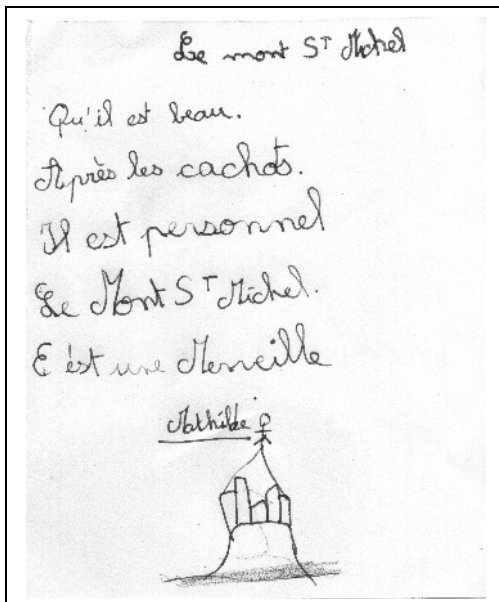 Le mont Sᵀ Michel
Qu'il est beau.
Après les cachots.
Il est personnel
Le Mont Sᵀ Michel.
C'ést une Merveille
Mathilde